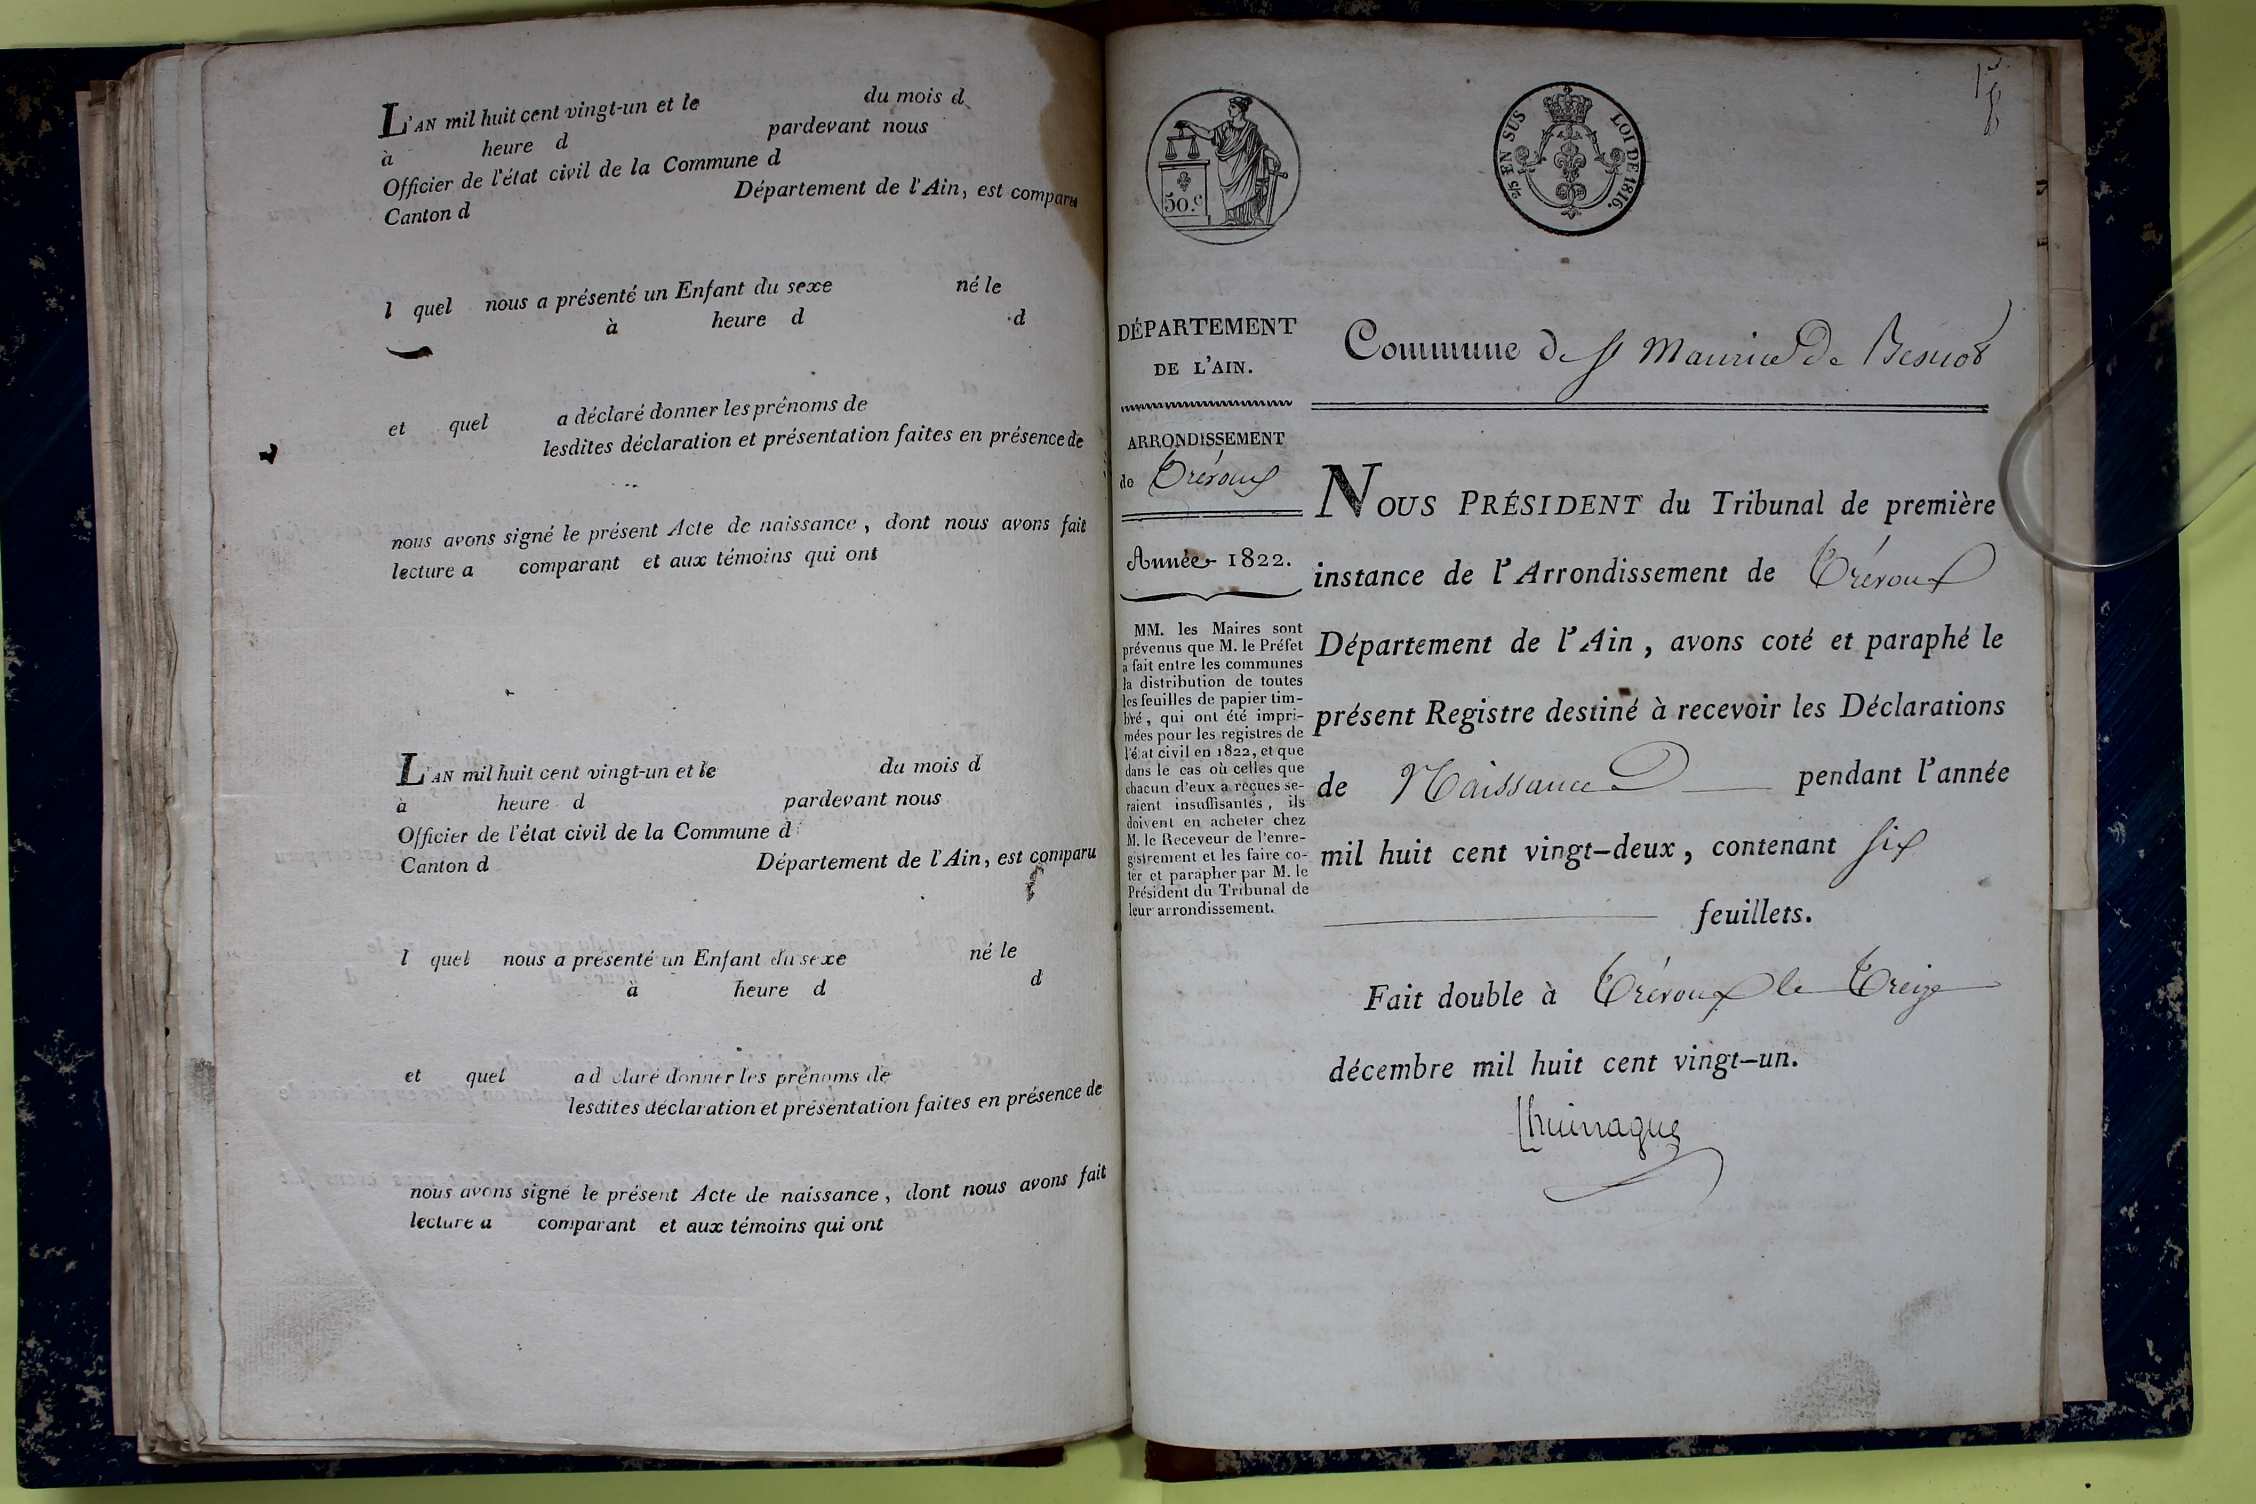 L'AN mil huit cent vingt-un et le du mois d
à heure d pardevant nous
Officier de l'état civil de la Commune d
Canton d Département de l'Ain, est comparu
l quel nous a présenté un Enfant du sexe né le
à heure d d
et quel a déclaré donner les prénoms de
lesdites déclaration et présentation faites en présence de
nous avons signé le présent Acte de naissance, dont nous avons fait
lecture a comparant et aux témoins qui ont
L'AN mil huit cent vingt-un et le du mois d
à heure d pardevant nous
Officier de l'état civil de la Commune d
Canton d Département de l'Ain, est comparu
l quel nous a présenté un Enfant du sexe né le
à heure d d
et quel a déclaré donner les prénoms de
lesdites déclaration et présentation faites en présence de
nous avons signé le présent Acte de naissance, dont nous avons fait
lecture a comparant et aux témoins qui ont
50.c
2/5 EN SUS LOI DE 1816.
DÉPARTEMENT
DE L'AIN.
ARRONDISSEMENT
de Trévoux
Année 1822.
MM. les Maires sont
prévenus que M. le Préfet
a fait entre les communes
la distribution de toutes
les feuilles de papier tim-
bré, qui ont été impri-
mées pour les registres de
l'état civil en 1822, et que
dans le cas où celles que
chacun d'eux a reçues se-
raient insuffisantes, ils
doivent en acheter chez
M. le Receveur de l'enre-
gistrement et les faire co-
ter et parapher par M. le
Président du Tribunal de
leur arrondissement.
Commune de St Maurice De
NOUS PRÉSIDENT du Tribunal de première
instance de l'Arrondissement de Trévoux
Département de l'Ain, avons coté et paraphé le
présent Registre destiné à recevoir les Déclarations
de Naissance pendant l'année
mil huit cent vingt-deux, contenant six
feuillets.
Fait double à Trévoux le Treize
décembre mil huit cent vingt-un.